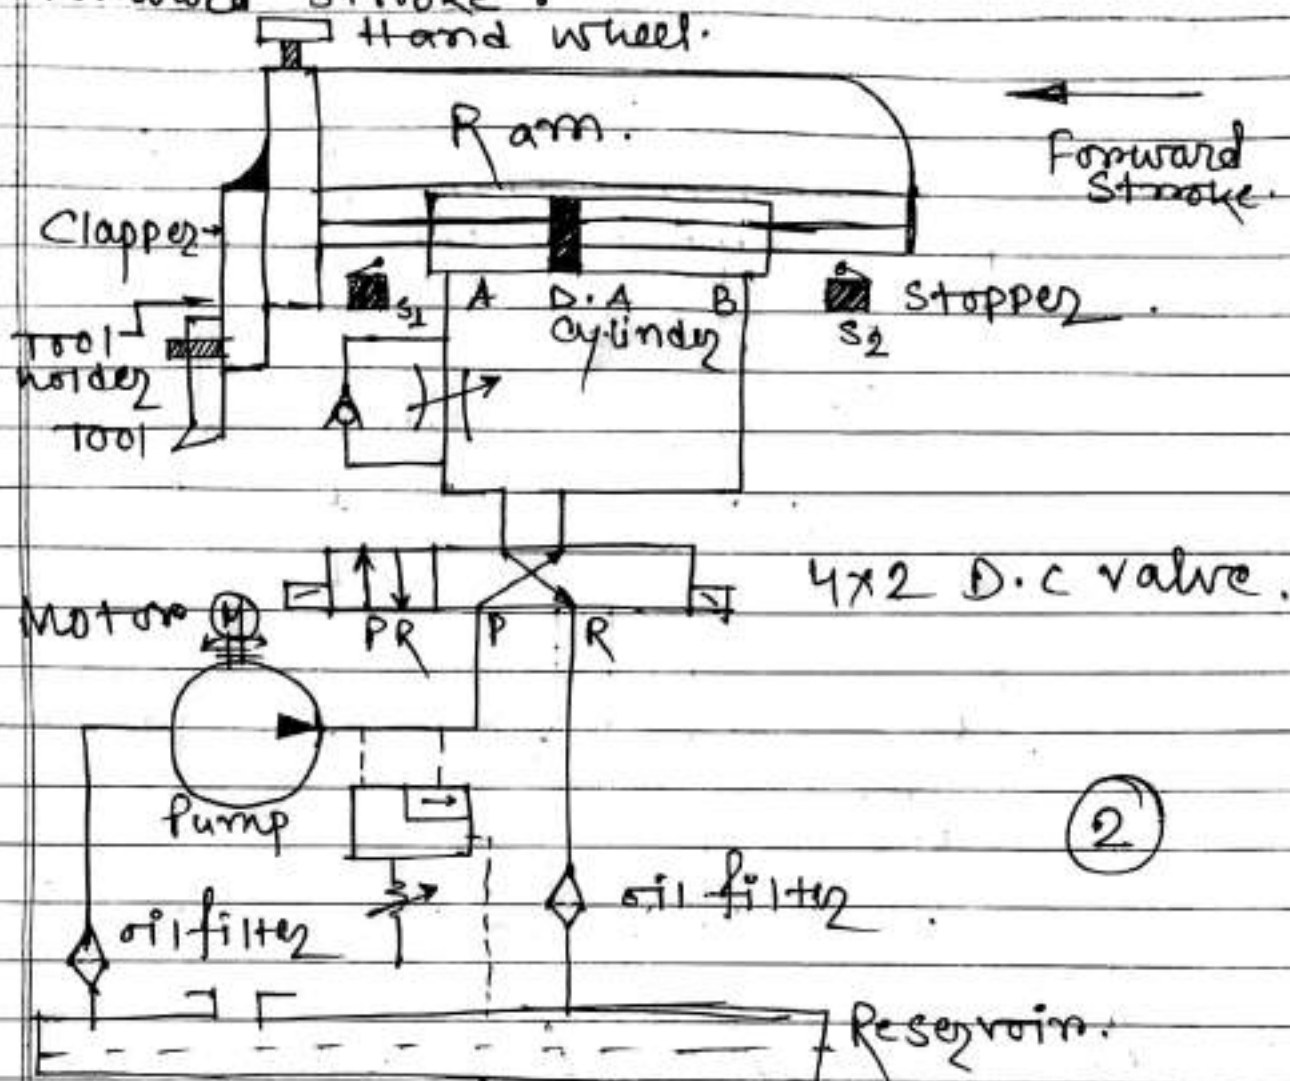 Forward Stroke.
Hand wheel.
Ram.
Forward
Stroke.
Clapper
S1
A
D.A
B
Cylinder
S2
Stopper.
Tool
holder
Tool
4x2 D.C valve.
Motor
M
P R
P
R
Pump
2
oil filter
oil filter.
Reservoir.